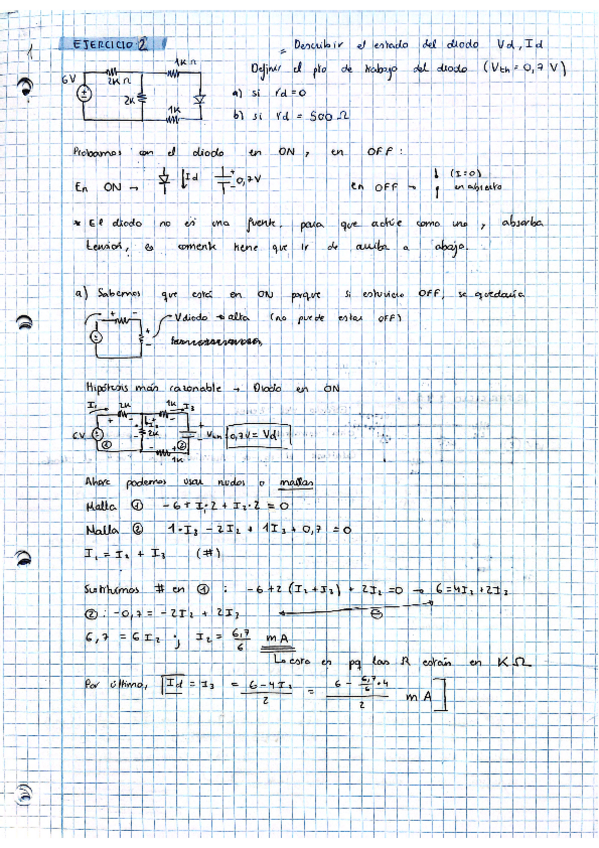 EJERCICIO 2
= Describir el estado del diodo Vd, Id
Definir el pto de trabajo del diodo (Vth = 0,7 V)
a) si rd = 0
b) si rd = 500 Ω
6V
2KΩ
1KΩ
2K
1K
Probamos con el diodo en ON, en OFF:
En ON → Id 0,7V
en OFF → (I=0) en abierto
* El diodo no es una fuente, para que actúe como una, absorba
tensión, corriente tiene que ir de arriba a abajo.
a) Sabemos que está en ON porque si estuviese OFF, se quedaría
Vdiodo → alta (no puede estar OFF)
Hipótesis más razonable → Diodo en ON
I1 2K 1K I3
6V 1 2K 2 Vth 0,7V = Vd
1K
Ahora podemos usar nudos o mallas
Malla 1 -6 + I1·2 + I2·2 = 0
Malla 2 1·I3 - 2I2 + 1I3 + 0,7 = 0
I1 = I2 + I3 (#)
Sustituimos # en 1 : -6+2 (I2+I3) + 2I2 = 0 → 6=4I2+2I3
2 : -0,7 = -2I2 + 2I3
6,7 = 6 I2 ; I2 = 6,7/6 mA
Lo esta en pq las R están en KΩ
Por último, Id = I3 = (6-4I2)/2 = (6 - 6,7/6 · 4)/2 mA